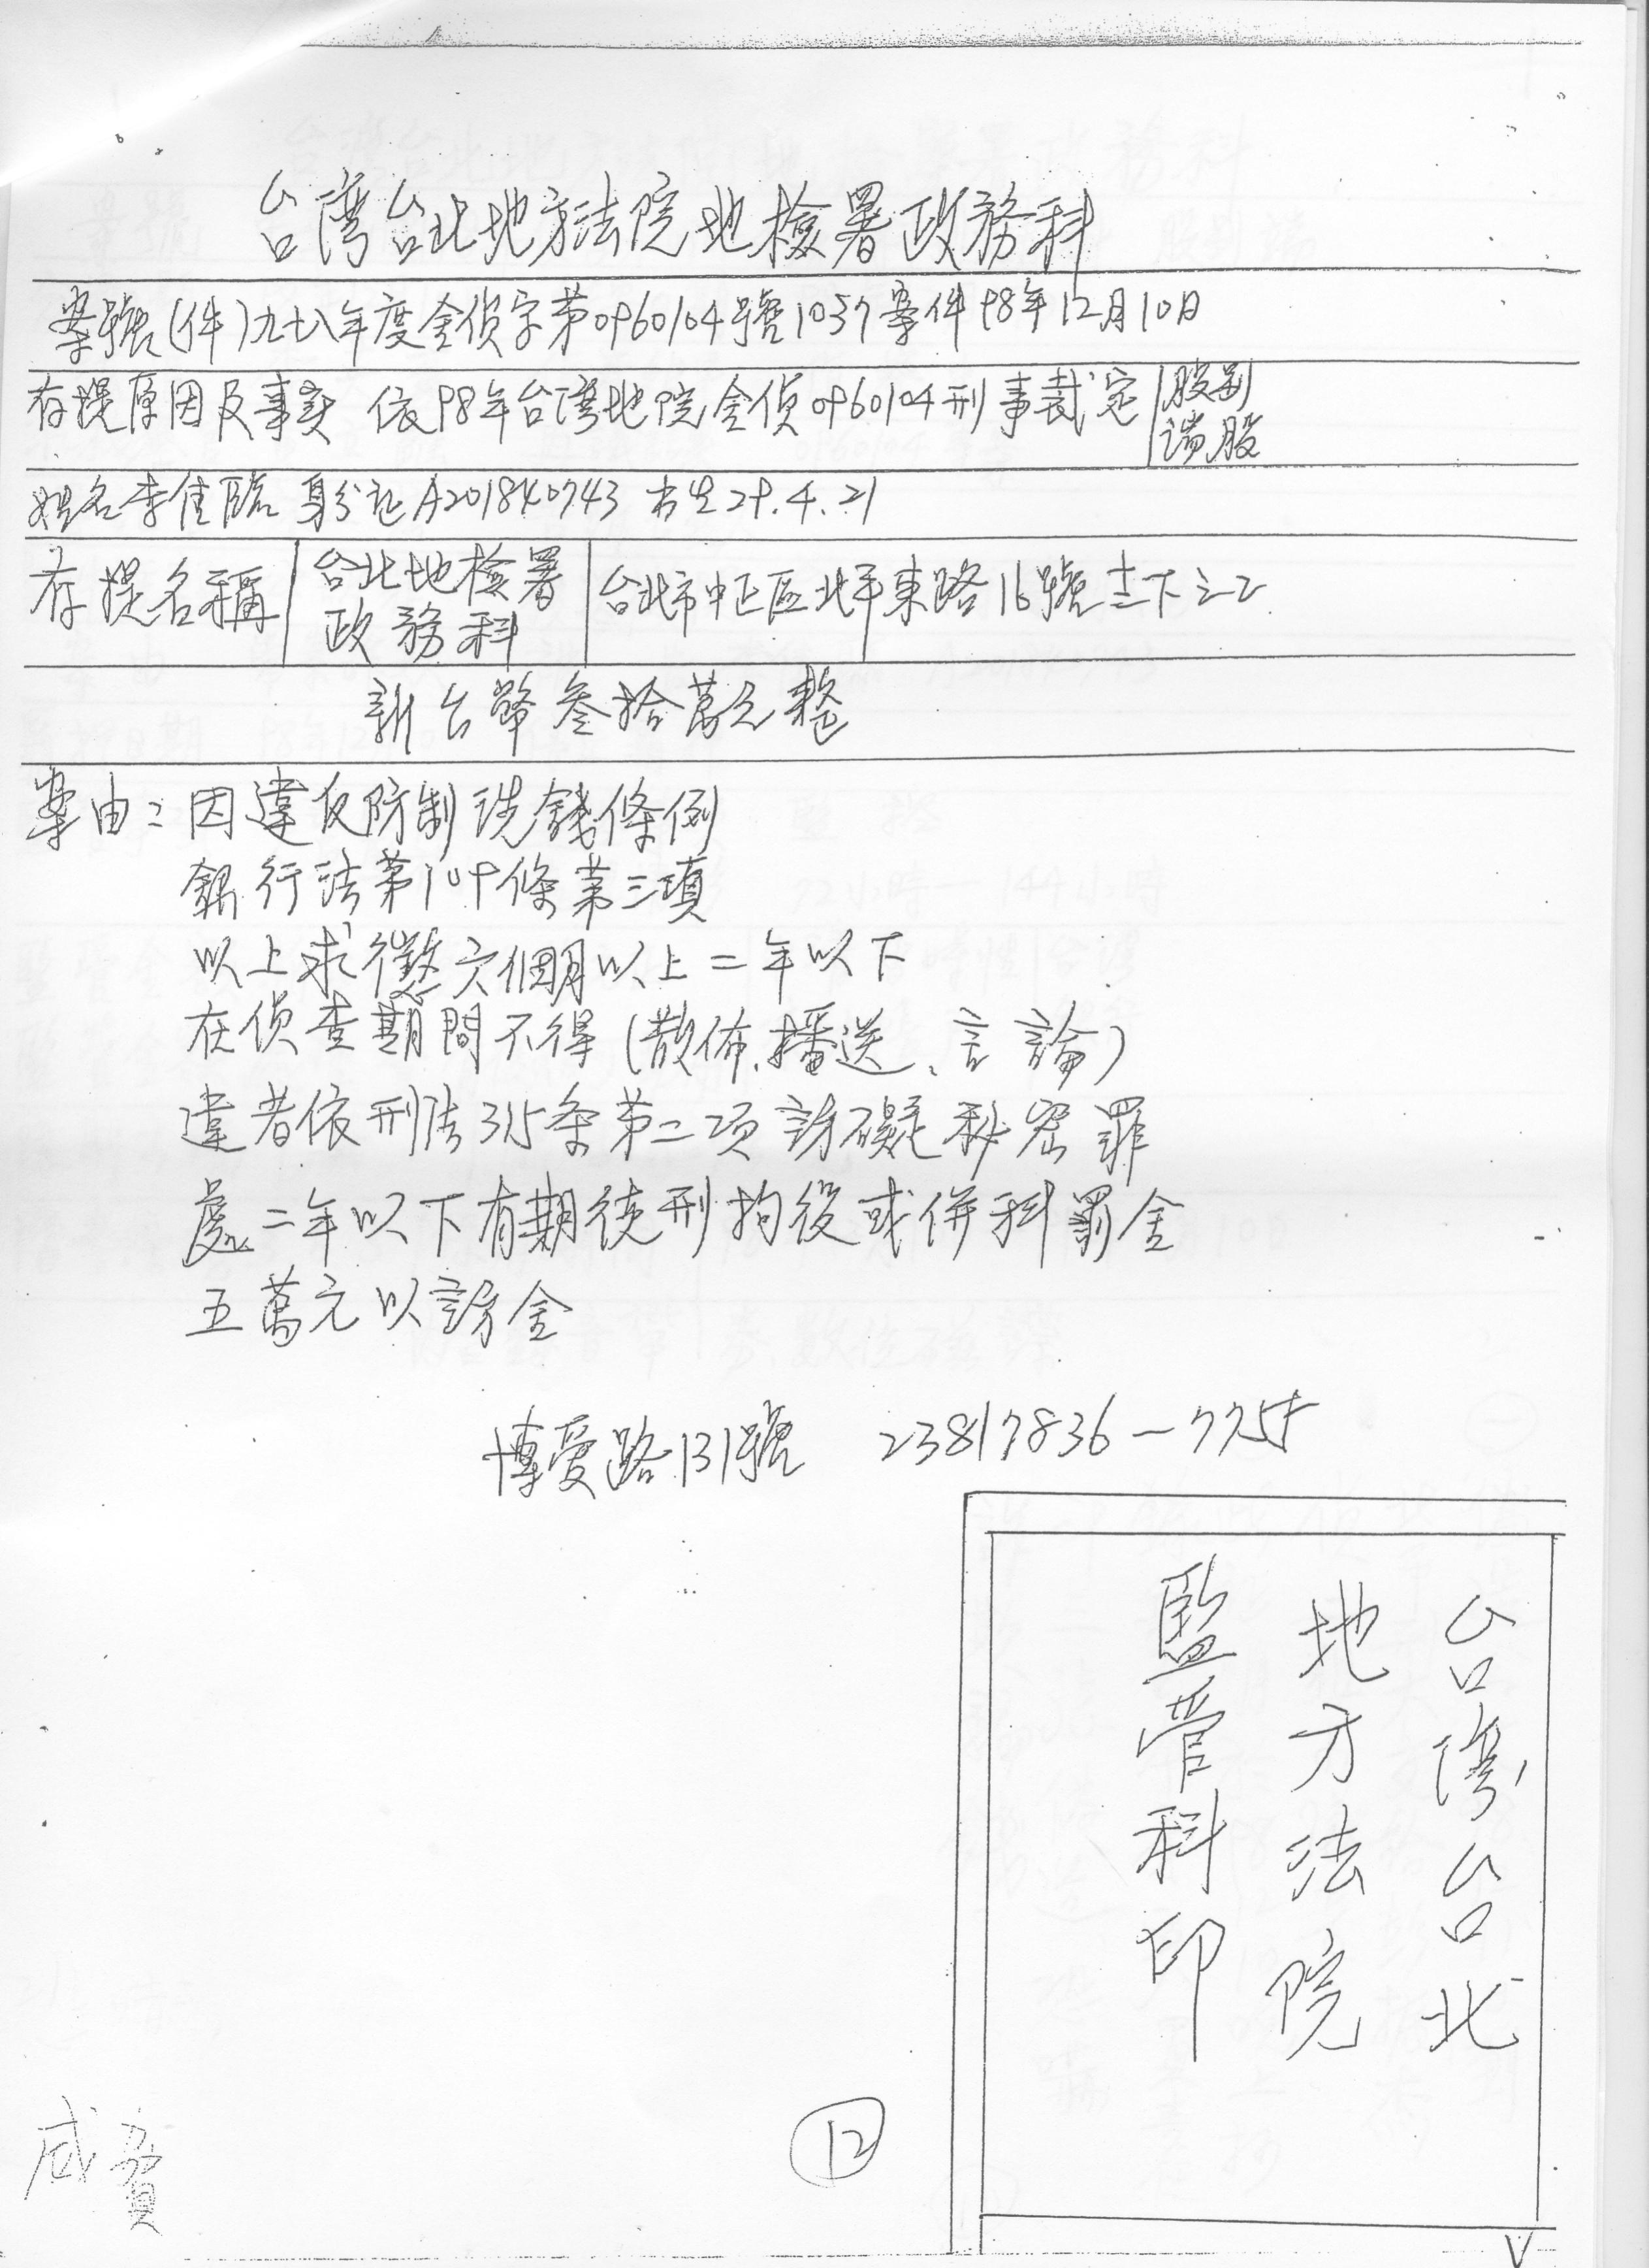 台灣台北地方法院地檢署政務科
案號(件)九十八年度金偵字第0960104號1037案件98年12月10日
存提原因及事実 依98年台湾地院金偵0960104刑事裁定
股別
端股
姓名李佳臨 身分証A201840743 出生29.4.21
存提名稱
台北地檢署
政務科
台北市中正區北平東路16號 下之2
新台幣叁拾萬元整
案由:因違反防制洗錢條例
銀行法第109條第三項
以上求懲六個月以上二年以下
在偵查期間不得(散佈、播送、言論)
違者依刑法315条第二项訪礙秘密罪
處二年以下有期徒刑拘役或併科罰金
五萬元以訪金
博愛路131號 23817836-775
台灣台北
地方法院
監管科印
12
V